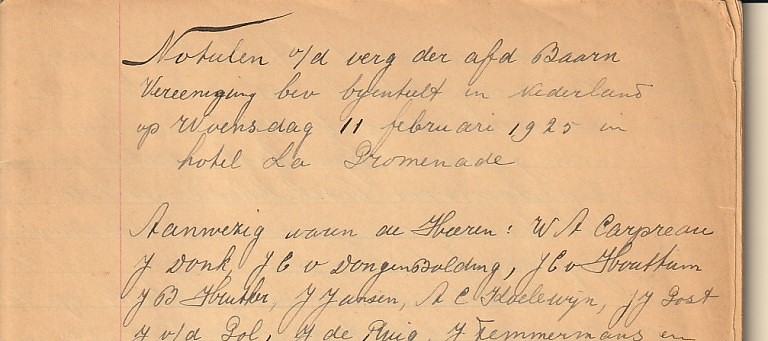 Notulen v/d verg der afd Baarn
Vereeniging bev byenteelt in Nederland
op Woensdag 11 februari 1925 in
hotel La Promenade
Aanwezig waren de Heeren: W A Carpreau
J Donk, J C v Dongen Bolding, J C v Houttum
J B J Jansen, A C Koelewijn, J J Post
J v/d Pol, J de Ruig, J Temmermans en